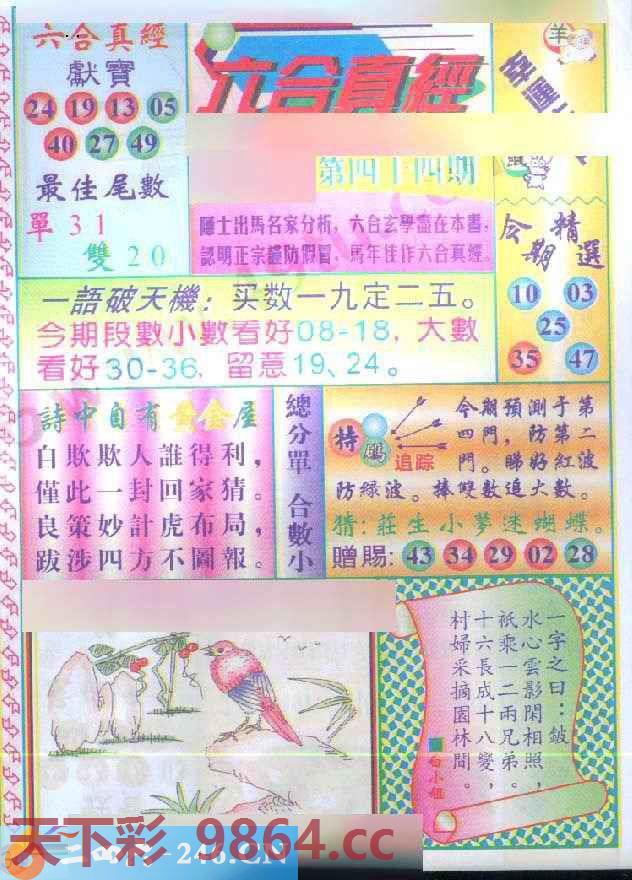 六合真經
獻寶
24 19 13 05
40 27 49
最佳尾數
單 3 1
雙 2 0
六合真經
第四十四期
隱士出馬名家分析，六合玄學盡在本書，
認明正宗謹防假冒，馬年佳作六合真經。
羊
今期精選
10 03
25
35 47
一語破天機：买数一九定二五。
今期段數小數看好08-18，大數
看好30-36，留意19、24。
詩中自有黃金屋
自欺欺人誰得利，
僅此一封回家猜。
良策妙計虎布局，
跋涉四方不圖報。
總分單 合數小
特碼
追踪
今期預測于第
四門，防第二
門。睇好紅波
防綠波。捧雙數追大數。
猜：莊生小夢迷蝴蝶。
贈賜：43 34 29 02 28
一字之曰：鈸
水心雲影閑相照，
祇乘一二兩兄弟。
十六長成十八變，
村婦采摘園林間。
白小姐
天下彩 9864.cc
246.CN